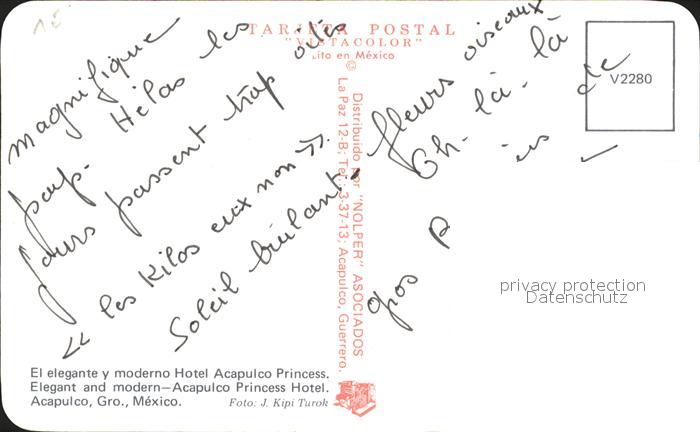 TARJETA POSTAL
"VISTACOLOR"
ito en México
©
V2280
magnifique
pays.
Hélas les
jours passent trop vite
« les Kilos eux non »
Soleil brûlant,
fleurs oiseaux
Oh-là-là
de
gros
Distribuido por "NOLPER" ASOCIADOS
La Paz 12-B; Tel.: 3-37-13; Acapulco, Guerrero.
privacy protection
Datenschutz
El elegante y moderno Hotel Acapulco Princess.
Elegant and modern—Acapulco Princess Hotel.
Acapulco, Gro., México.
Foto: J. Kipi Turok